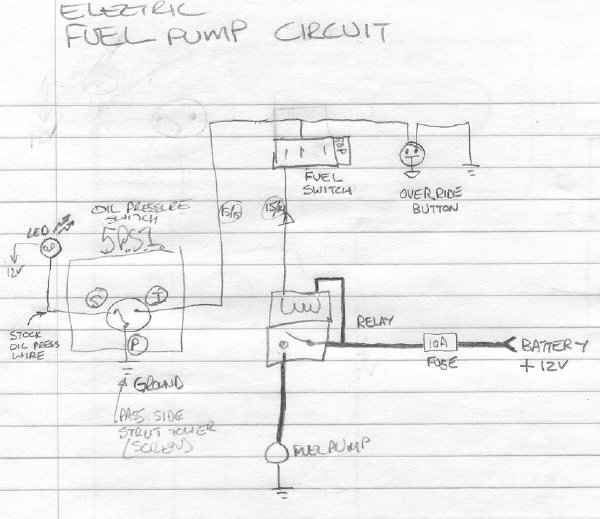 ELECTRIC
FUEL PUMP CIRCUIT
TOP
FUEL
SWITCH
OVERRIDE
BUTTON
OIL PRESSURE
SWITCH
5 P.S.I.
LED
12V
S
I
P
STOCK
OIL PRESS
WIRE
GROUND
PASS. SIDE
STRUT TOWER
(SCREW)
RELAY
10A
FUSE
BATTERY
+ 12V
FUEL PUMP